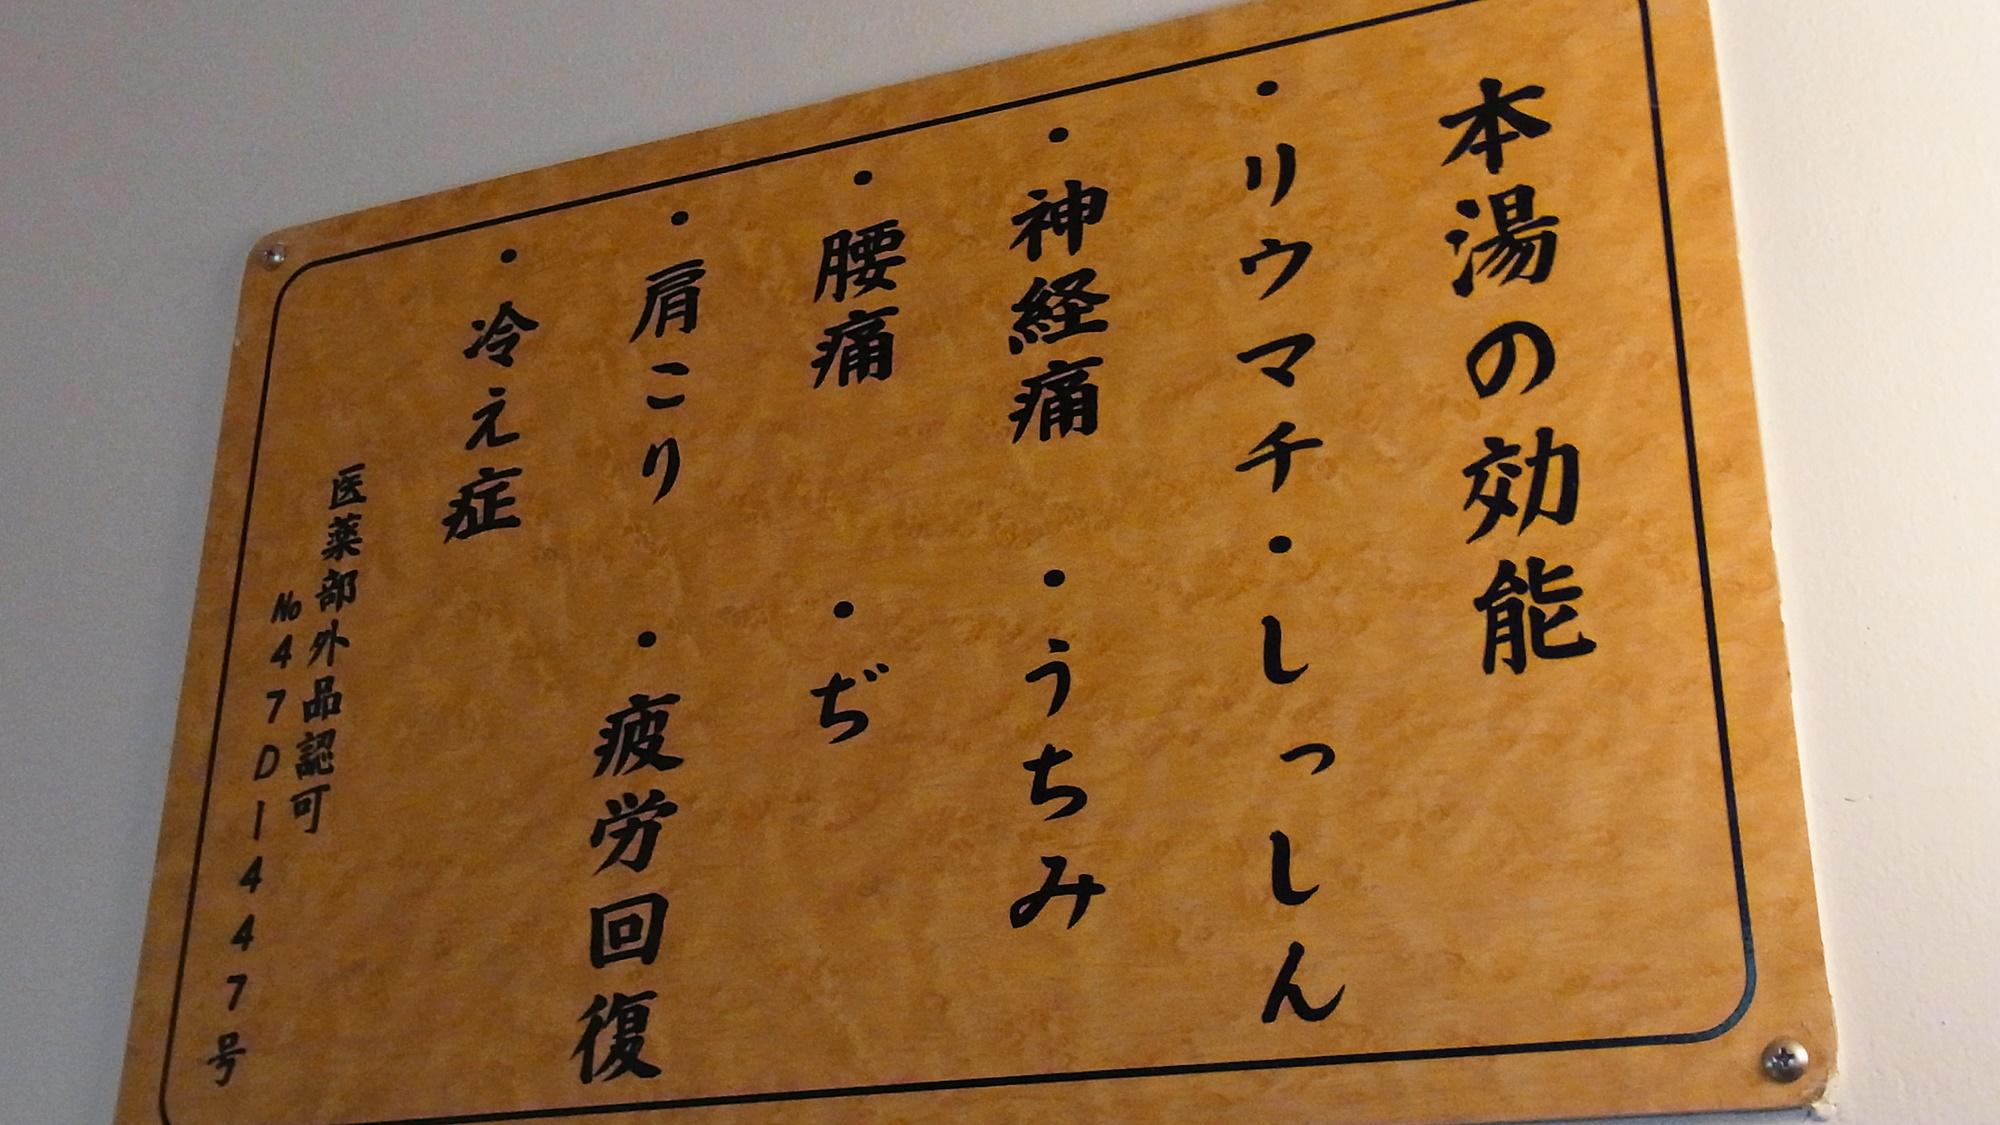 本湯の効能
・リウマチ・しっしん
・神経痛 ・うちみ
・腰痛 ・ぢ
・肩こり ・疲労回復
・冷え症
医薬部外品認可
No47D14447号